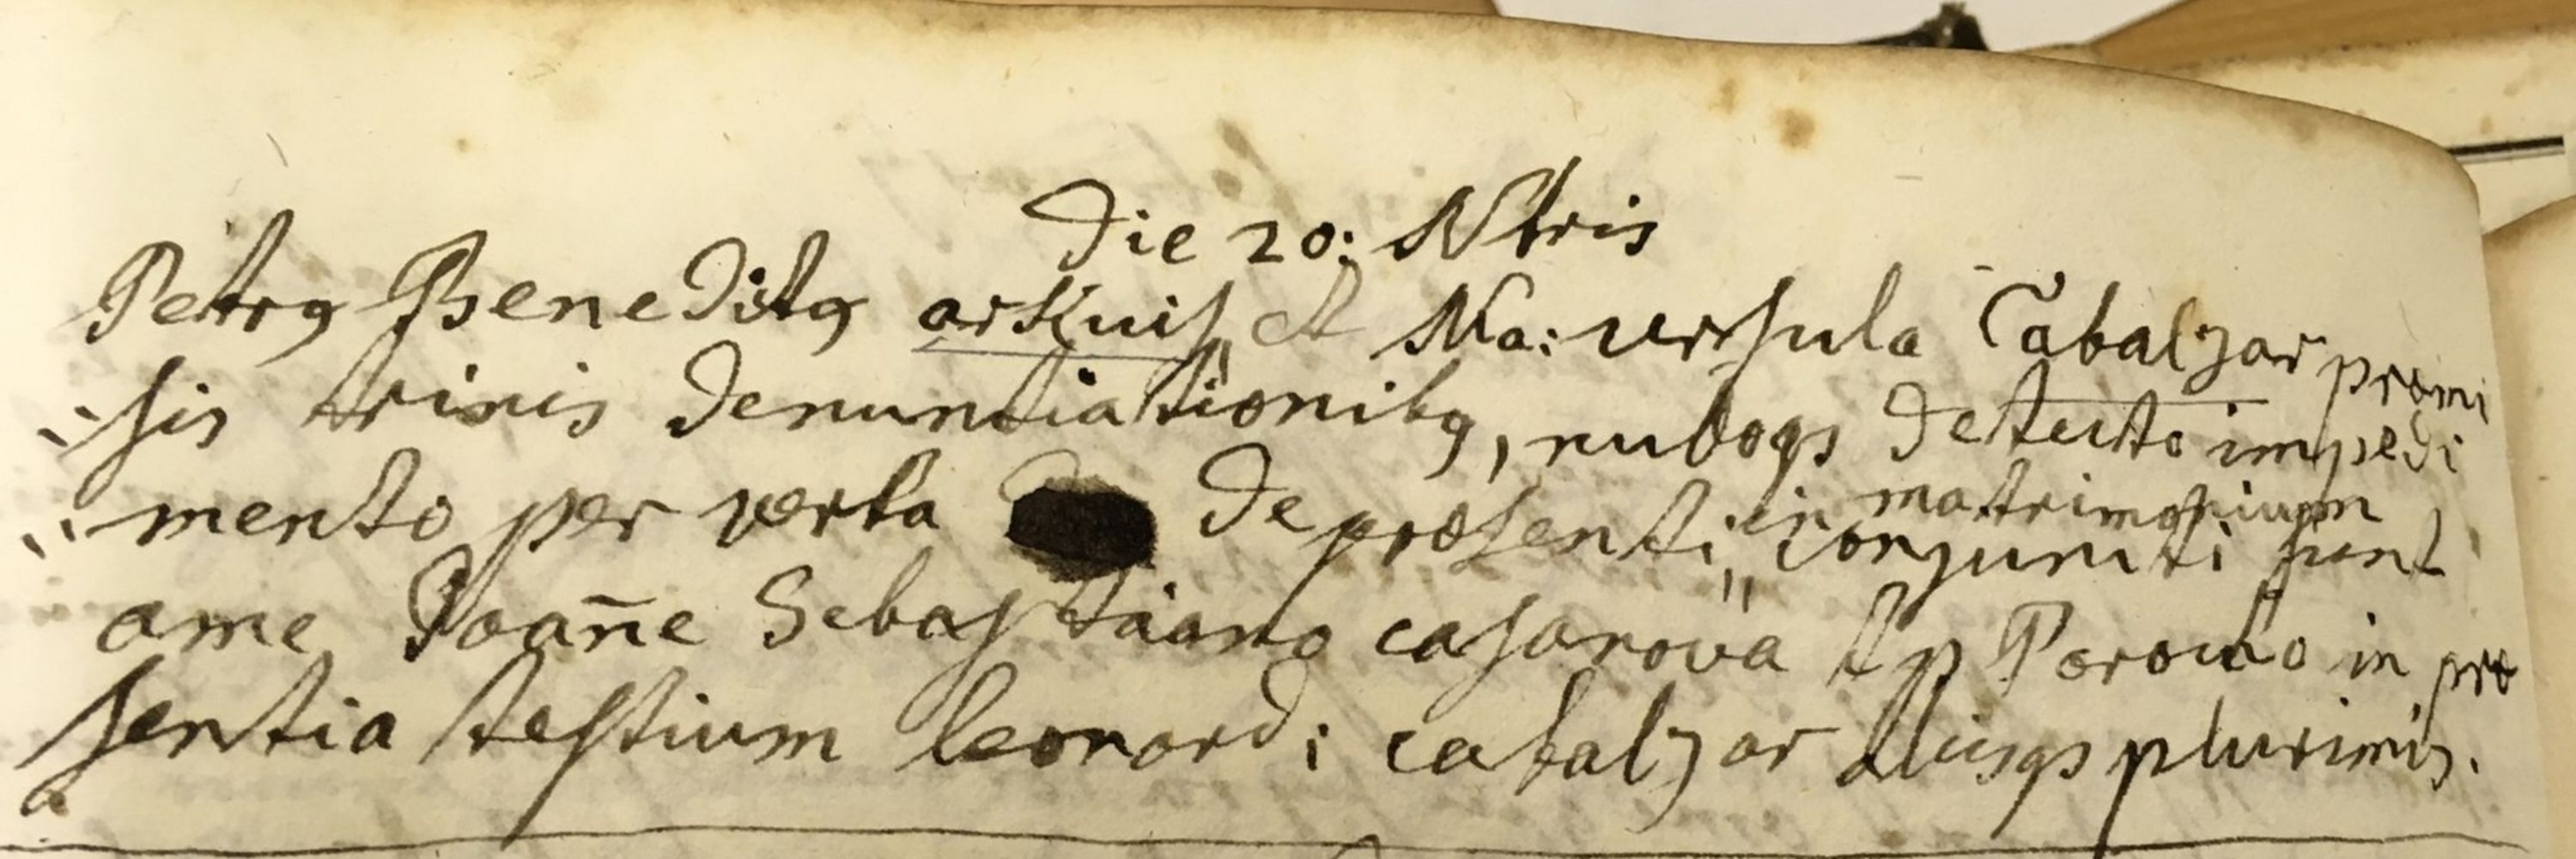 Die 20: Nbris
Petrg Beneditg arKuiſ, et Ma: urſula Cabalzar prӕmi
ſis trinis denuntiationibg, nuloqs detecto impedi
mento per verba de prӕſenti, in matrimonium
conjuncti ſunt
a me Joañe Sebaſtiano caſanova Parocho in prӕ
ſentia teſtium leonardi cabalzar aliisqs plurimis.